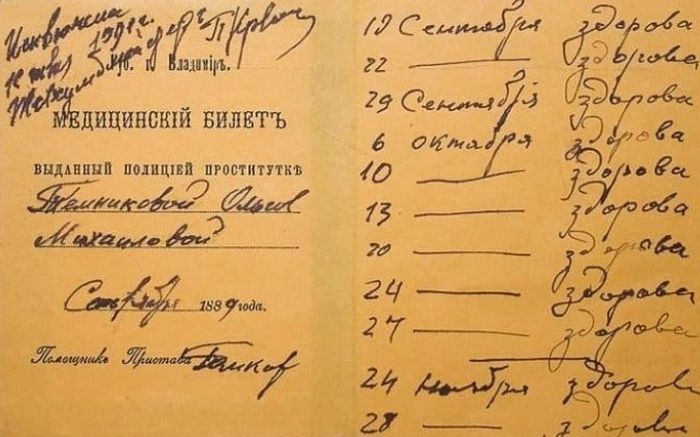 Исключена
г. Владиміръ.
МЕДИЦИНСКІЙ БИЛЕТЪ
ВЫДАННЫЙ ПОЛИЦІЕЙ ПРОСТИТУТКѢ
Темниковой Ольге
Михаиловой
Сентября 1889 года.
Помощникъ Пристава
19 Сентября здорова
22 — здорова
29 Сентября здорова
6 октября здорова
10 — здорова
13 — здорова
20 — здорова
24 — здорова
27 — здорова
24 ноября здорова
28 — здорова